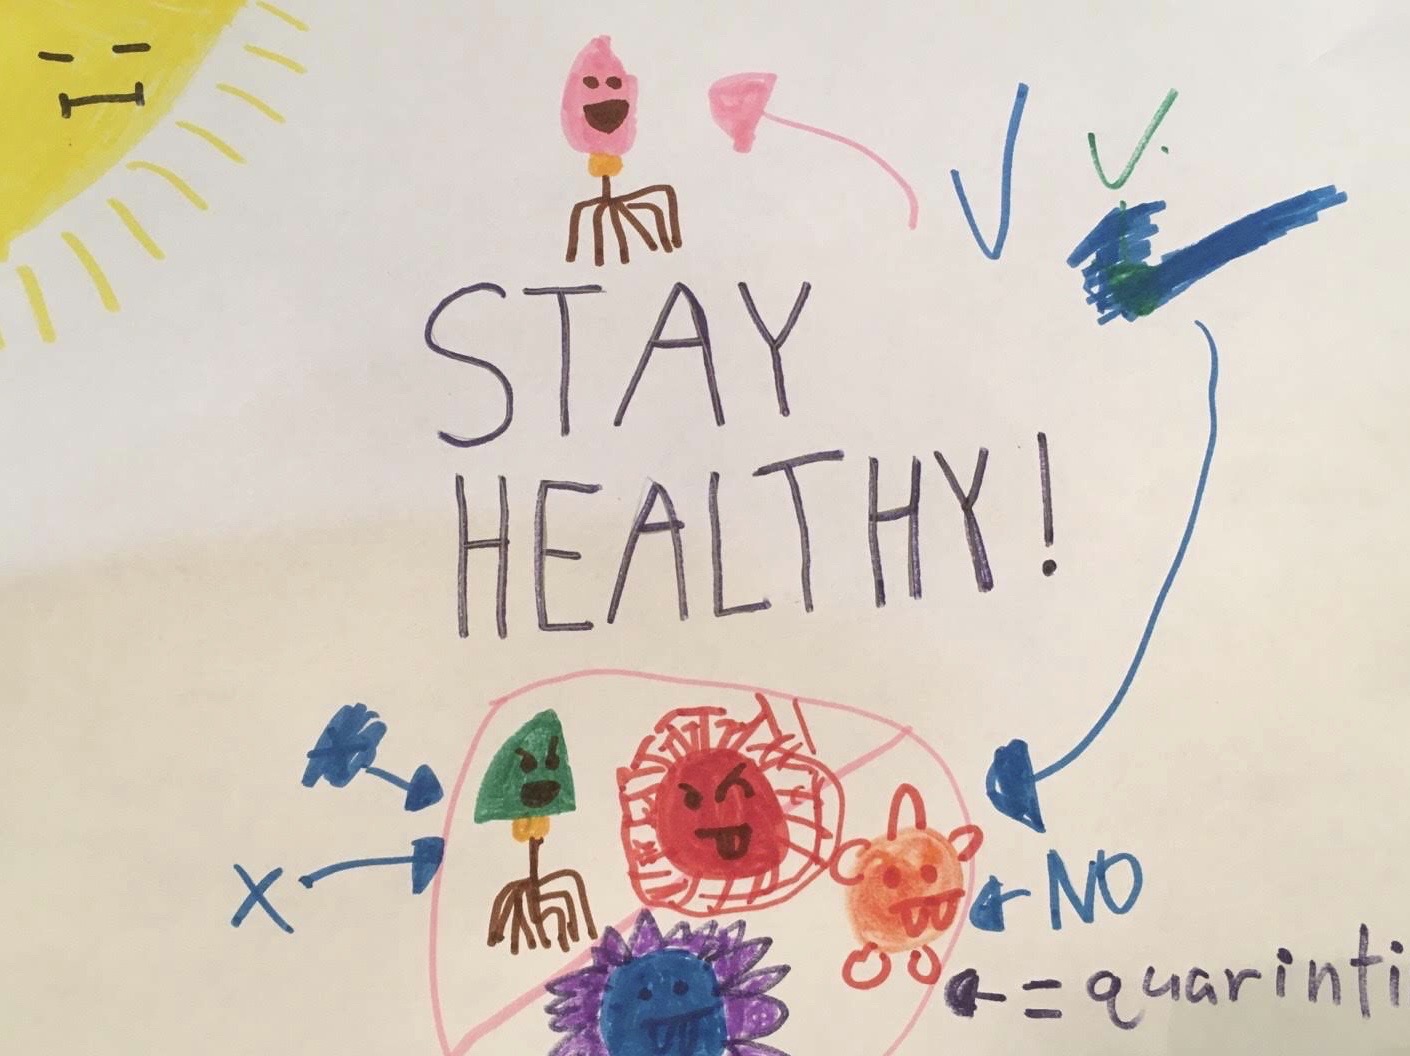 STAY
HEALTHY!
X
NO
= quarinti